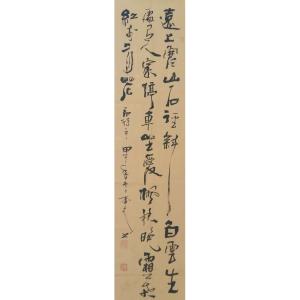 遠上寒山石徑斜白雲生
處有人家停車坐愛楓林晚霜葉
紅於二月花